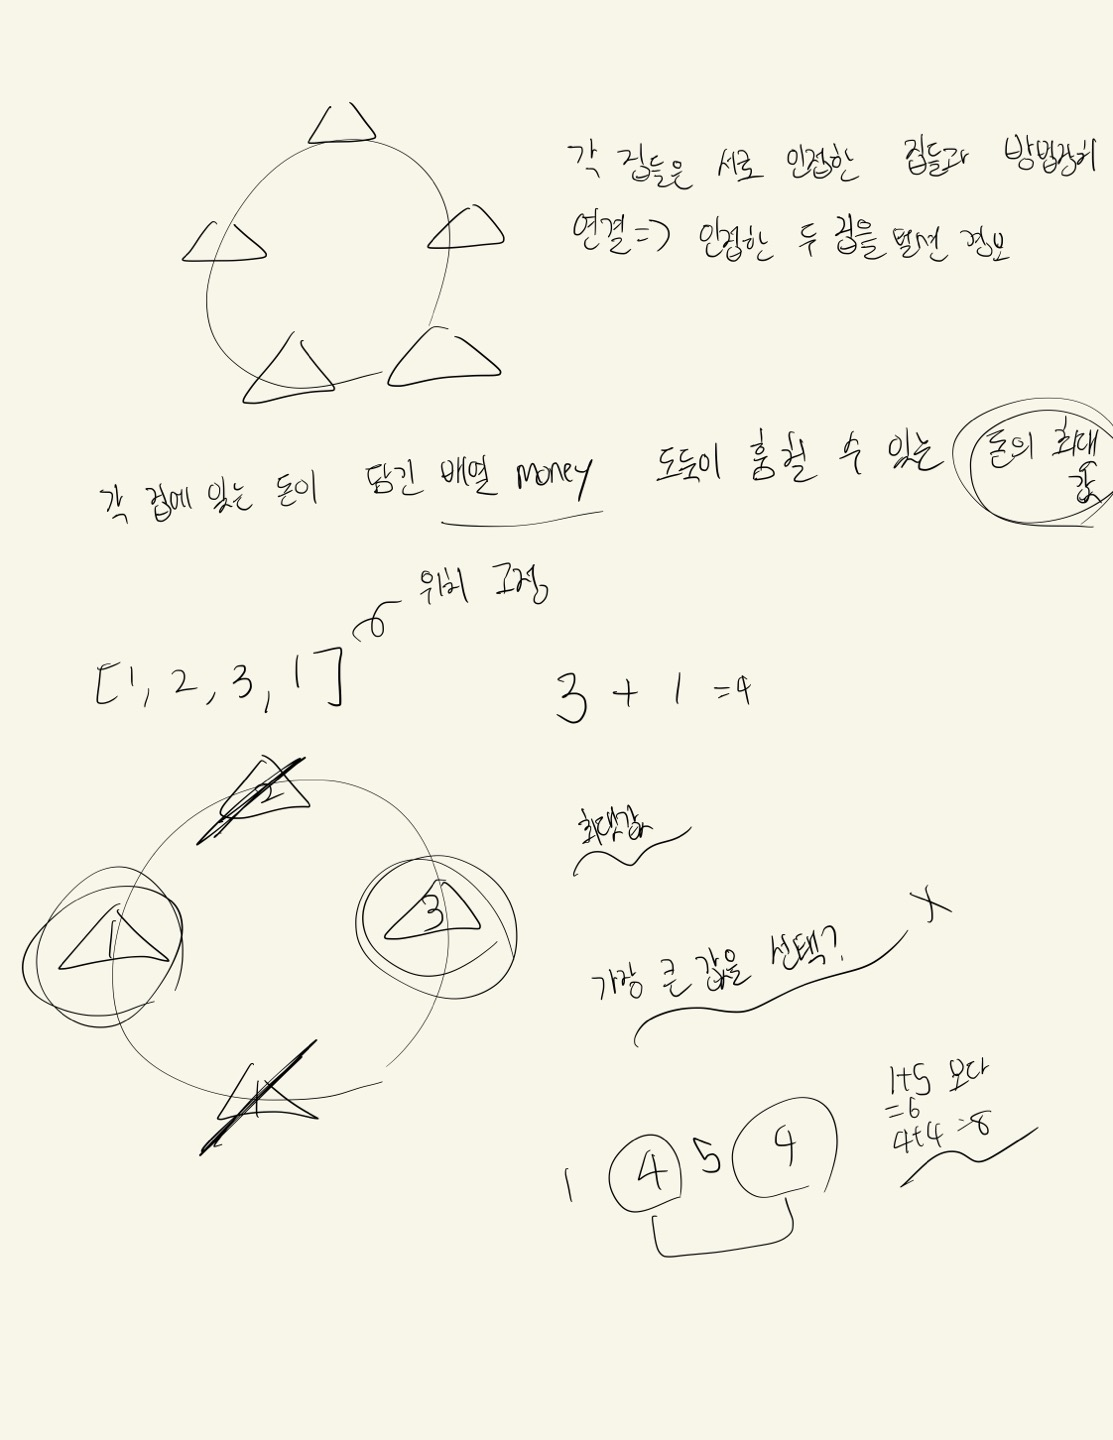 각 집들은 서로 인접한 집들과 방범장치
연결=> 인접한 두 집을 털면 경보
각 집에 있는 돈이 담긴 배열 money 도둑이 훔칠 수 있는 돈의 최대
값
위치 고정
[1, 2, 3, 1]
3 + 1 =4
2
최댓값
1
3
가장 큰 값을 선택? X
1
1+5 보다
=6
4+4 =8
1 4 5 4